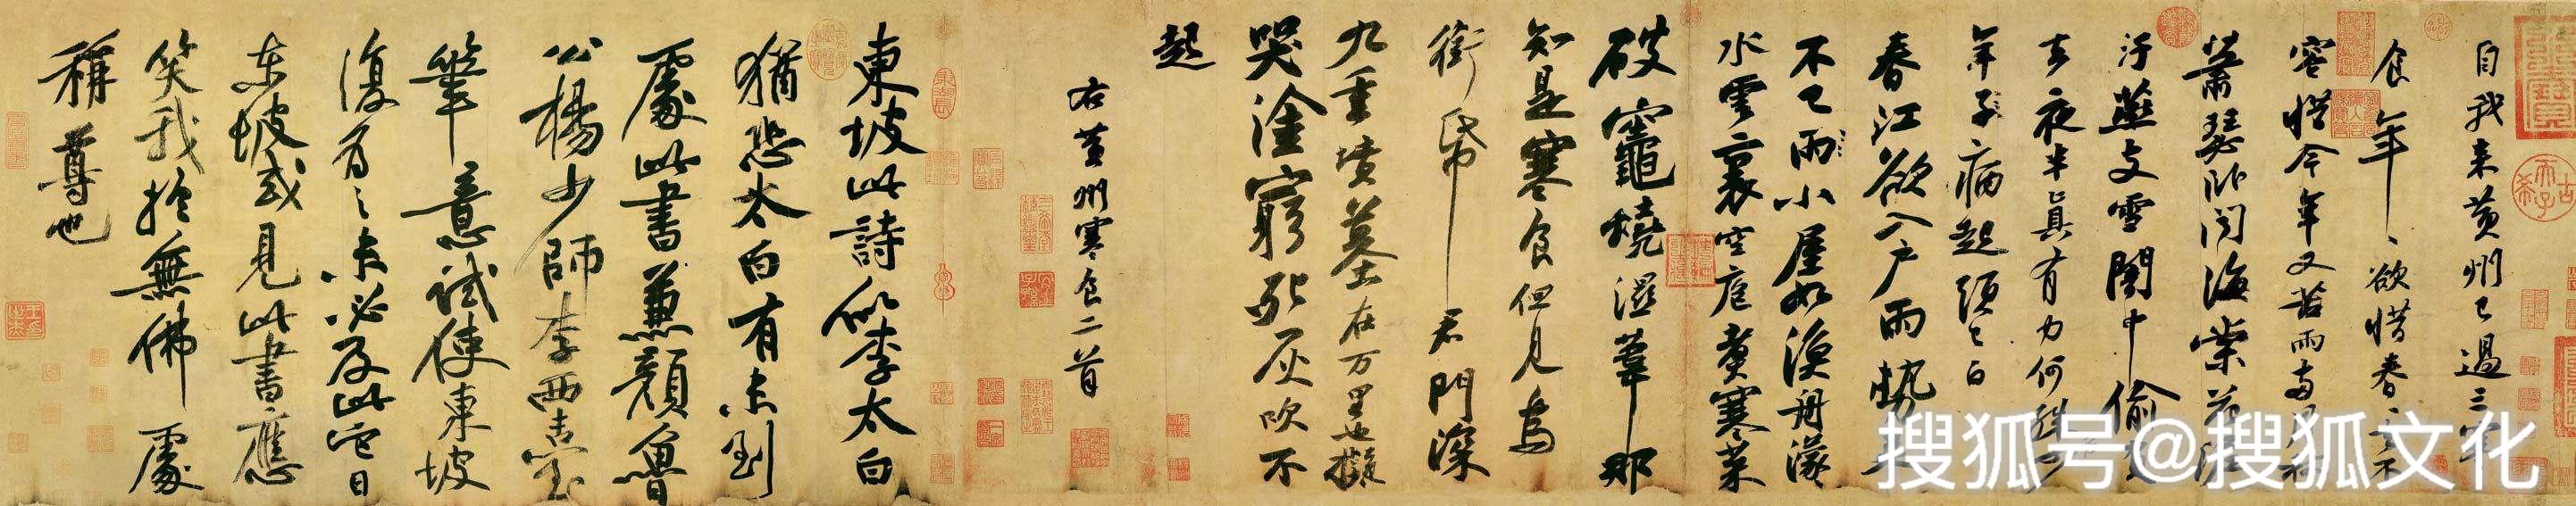 自我来黄州已過三寒
食年〻欲惜春〻去不
容惜今年又苦雨兩月秋
蕭瑟卧聞海棠花泥
汙燕支雪闇中偷負
去夜半真有力何殊少
年子病起頭已白
春江欲入戶雨勢来
不已雨小屋如漁舟濛〻
水雲裏空庖煮寒菜
破竈燒濕葦那
知是寒食但見烏
銜帋君門深
九重墳墓在万里也擬
哭塗窮死灰吹不
起
右黄州寒食二首
東坡此詩似李太白
猶恐太白有未到
處此書兼顏魯
公楊少師李西臺
筆意試使東坡
復為之未必及此它日
東坡或見此書應
笑我於無佛處
稱尊也
古希天子
搜狐号@搜狐文化